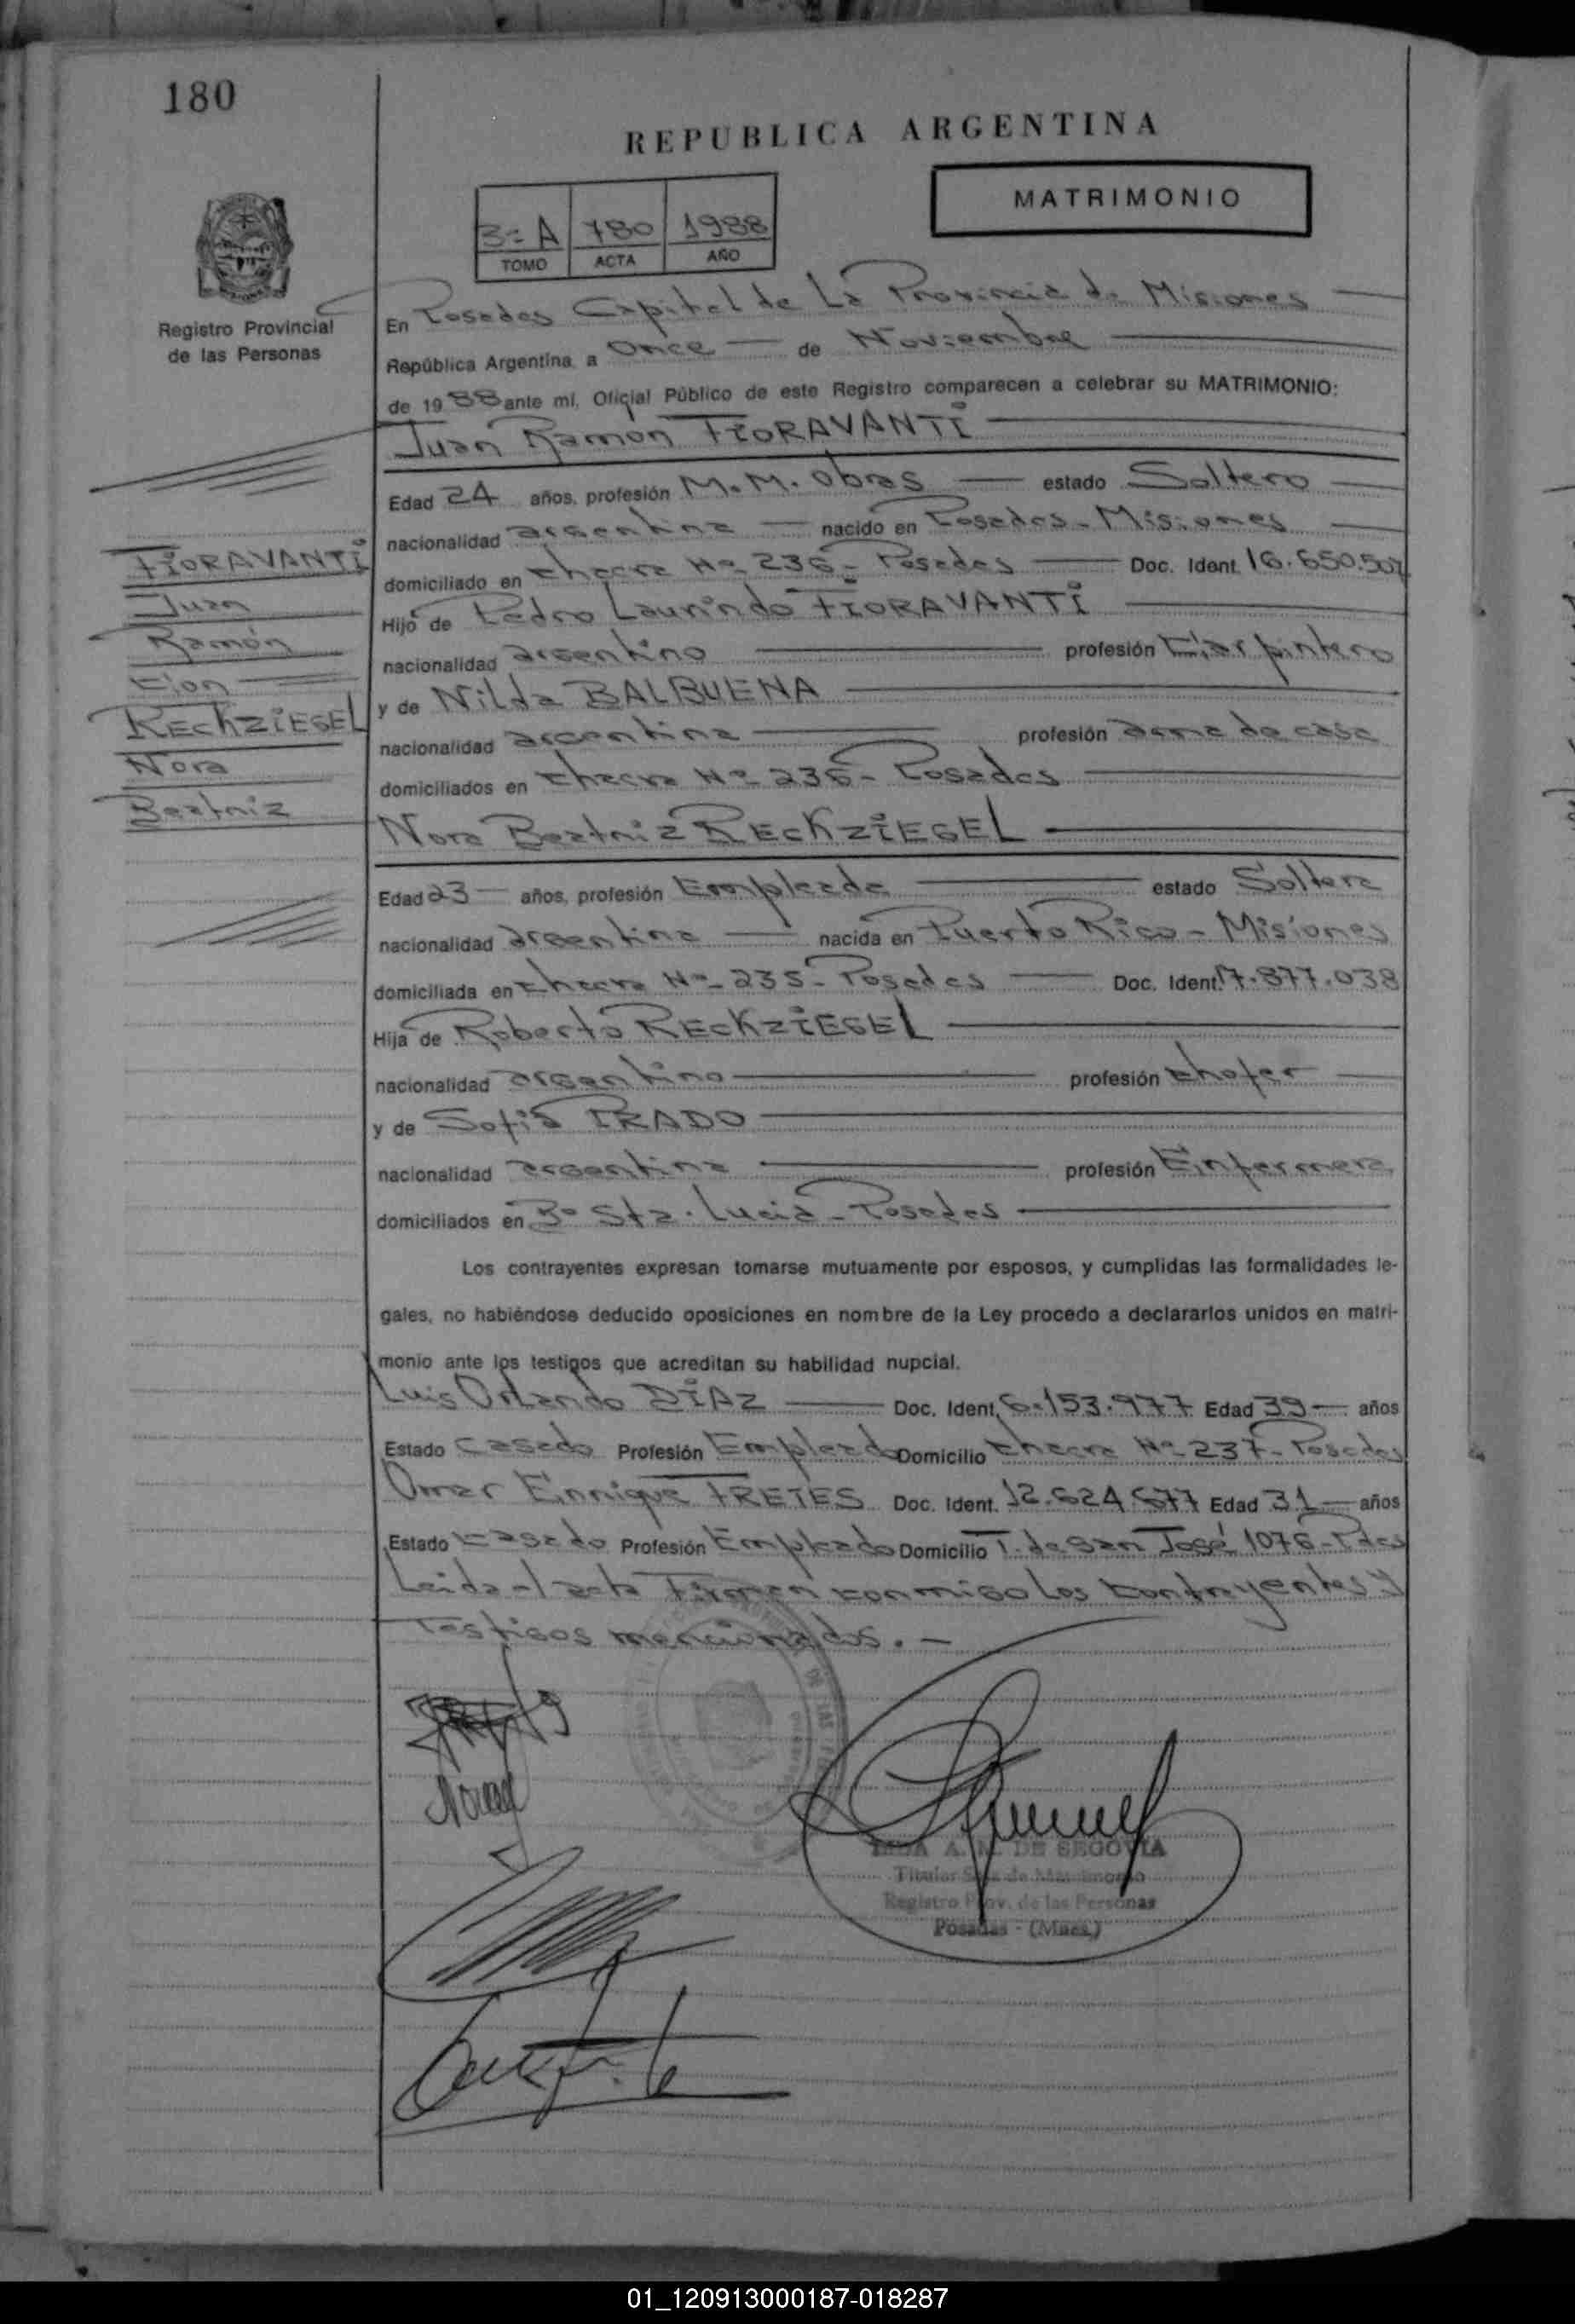 180
REPUBLICA ARGENTINA
MATRIMONIO
3= A 780 1988
TOMO ACTA AÑO
Registro Provincial
de las Personas
En Posadas Capital de La Provincia de Misiones
República Argentina, a Once de Noviembre
de 1988 ante mí, Oficial Público de este Registro comparecen a celebrar su MATRIMONIO:
Juan Ramón FIORAVANTI
Edad 24 años, profesión M.M. Obras estado Soltero
nacionalidad argentina nacido en Posadas - Misiones
domiciliado en chacra Nº 236 - Posadas Doc. Ident. 16.650.507
Hijo de Pedro Laurindo FIORAVANTI
nacionalidad argentino profesión Carpintero
y de Nilda BALBUENA
nacionalidad argentina profesión ama de casa
domiciliados en chacra Nº 236 - Posadas
FIORAVANTI
Juan
Ramón
con
RECKZIEGEL
Nora
Beatriz
Nora Beatriz RECKZIEGEL
Edad 23 años, profesión Empleada estado Soltera
nacionalidad argentina nacida en Puerto Rico - Misiones
domiciliada en chacra Nº 235 - Posadas Doc. Ident. 17.877.038
Hija de Roberto RECKZIEGEL
nacionalidad argentino profesión chofer
y de Sofia PRADO
nacionalidad argentina profesión Enfermera
domiciliados en Bº Sta. Lucia - Posadas
Los contrayentes expresan tomarse mutuamente por esposos, y cumplidas las formalidades le-
gales, no habiéndose deducido oposiciones en nombre de la Ley procedo a declararlos unidos en matri-
monio ante los testigos que acreditan su habilidad nupcial.
Luis Orlando DIAZ Doc. Ident. 6.153.977 Edad 39 años
Estado casado Profesión Empleado Domicilio chacra Nº 237 - Posadas
Omar Enrique FRETES Doc. Ident. 12.624.677 Edad 31 años
Estado casado Profesión Empleado Domicilio T. de San José 1076 - Pdas
Leida el acta Firman conmigo los contrayentes y
testigos mencionados. -
A. DE SEGOVIA
Titular Sec. de Matrimonio
Registro Prov. de las Personas
Posadas - (Mnes.)
01_120913000187-018287